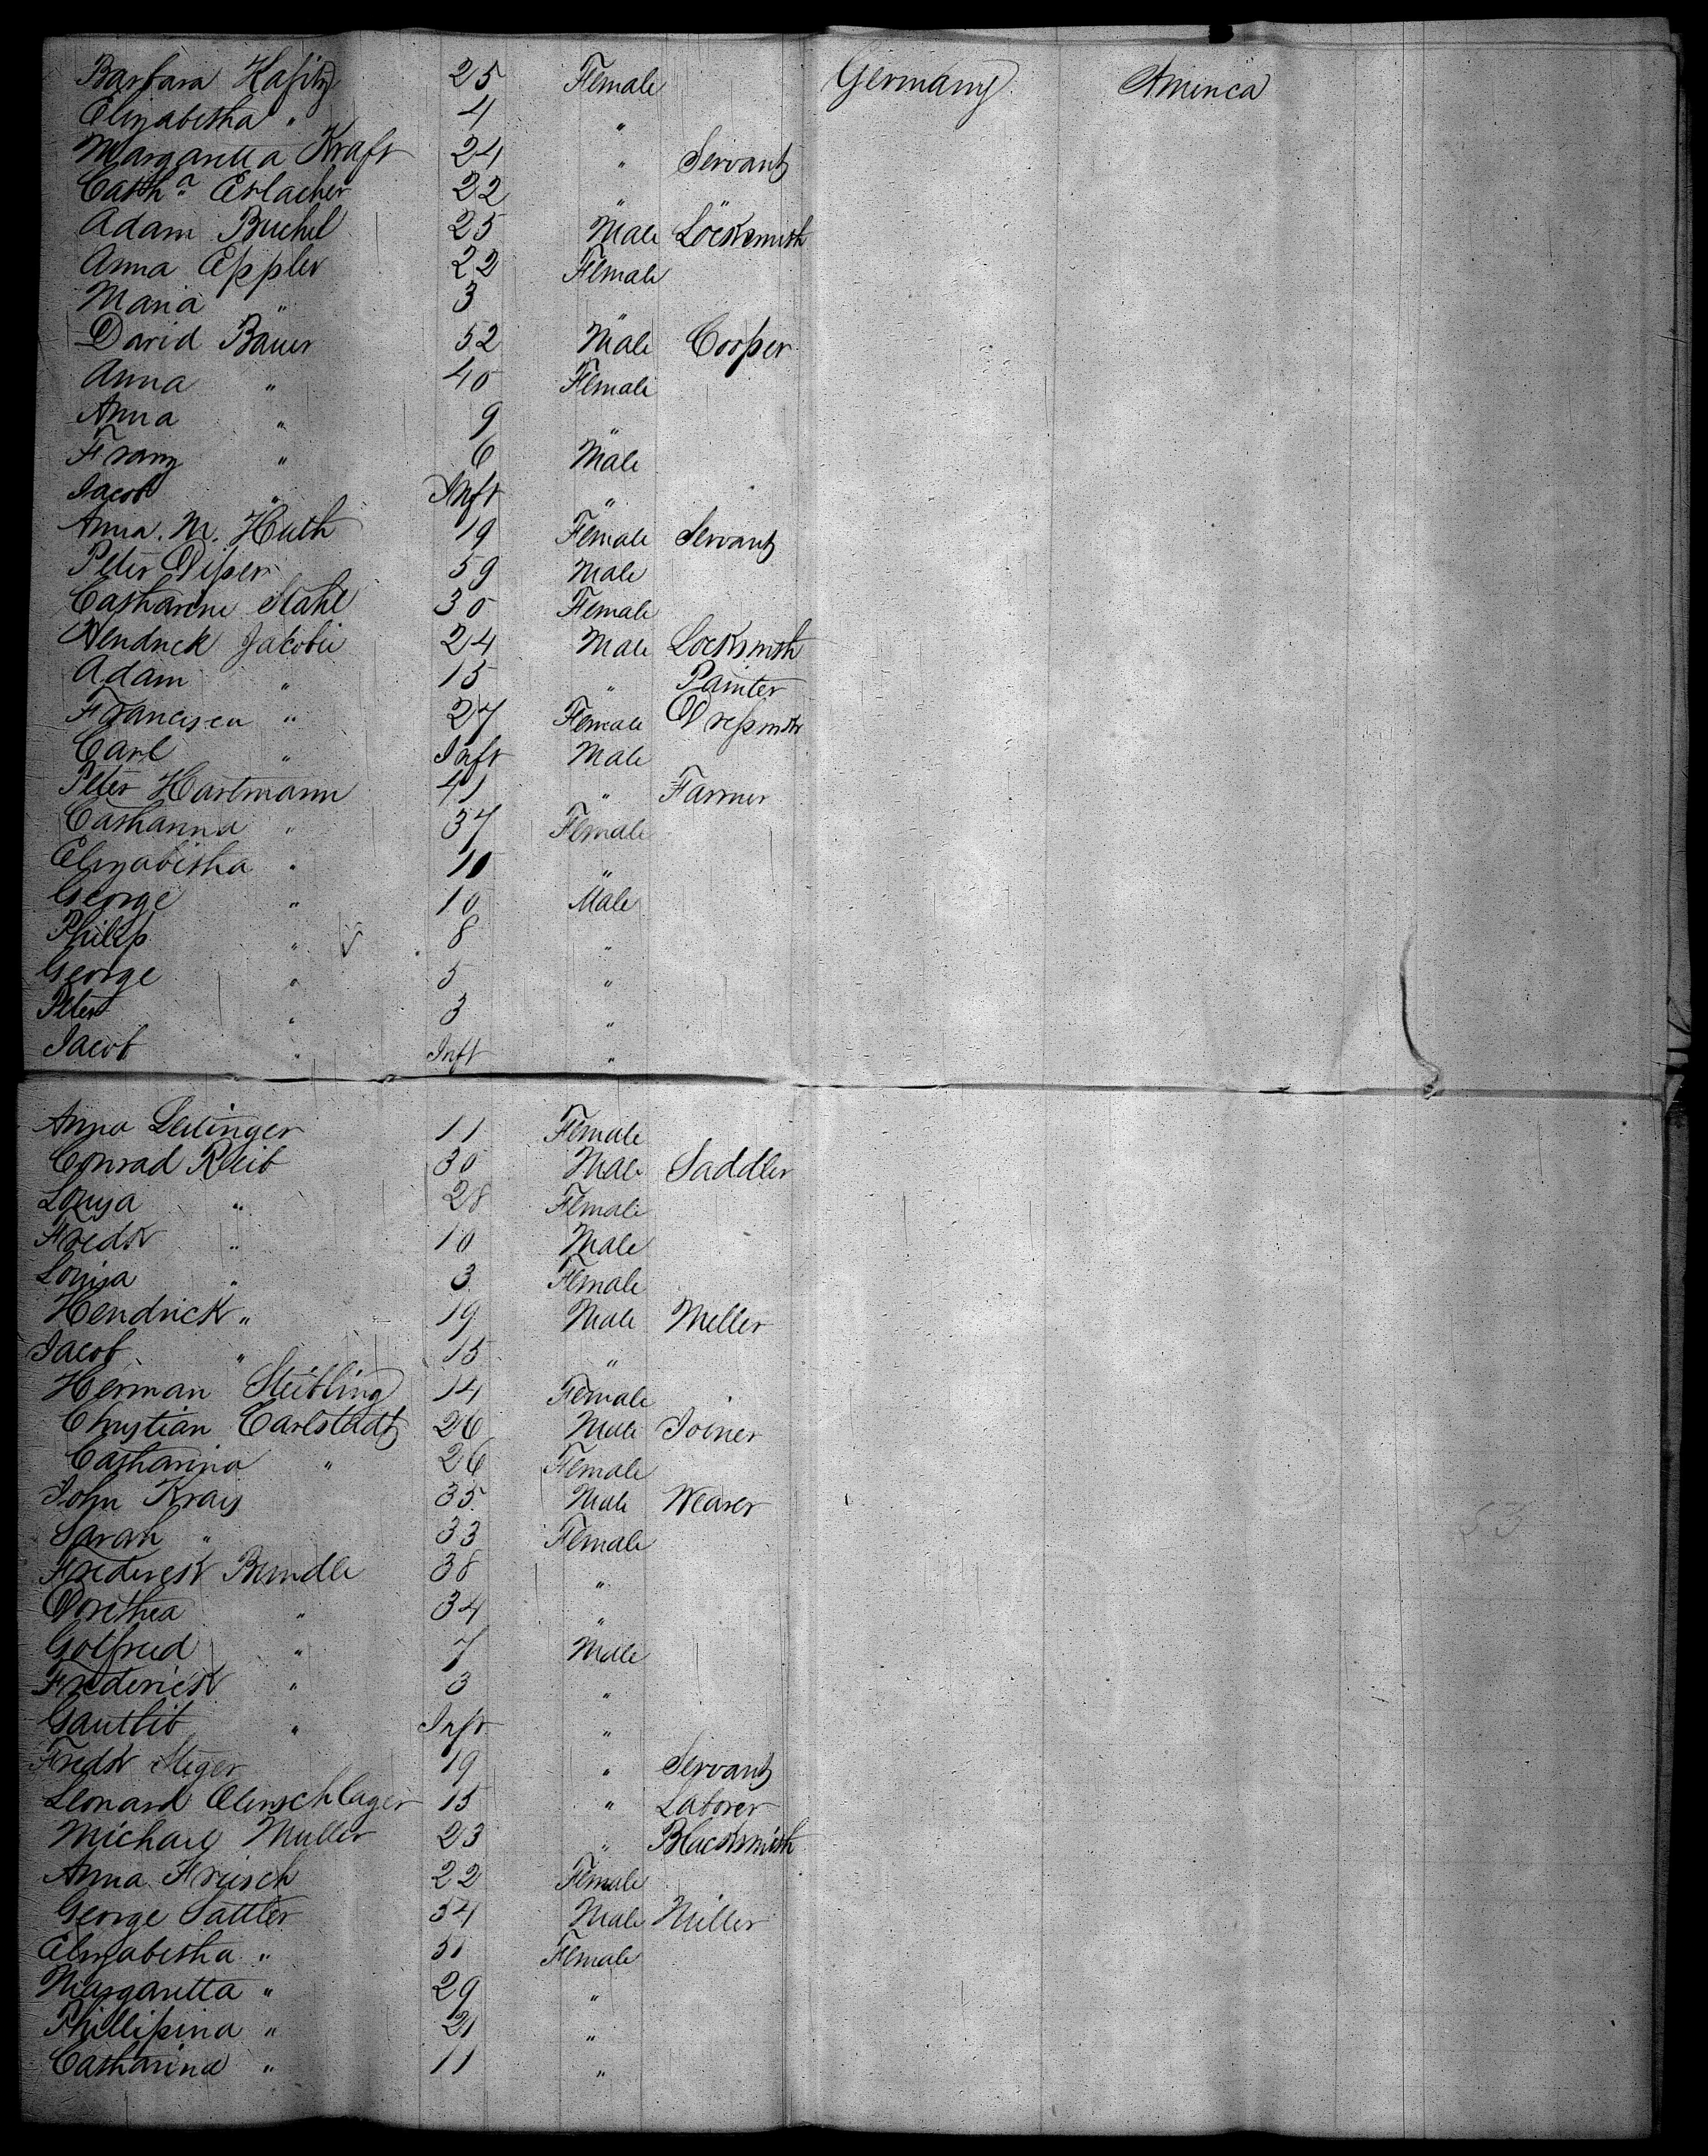 Barbara Hafitz 25 Female Germany America
Elizabetha " 4 "
Margaretta Kraft 24 " Servant
Cath.a Erlacher 22 "
Adam Buchel 25 Male Locksmith
Anna Eppler 22 Female
Maria " 3 "
David Bauer 52 Male Cooper
Anna " 40 Female
Anna " 9 "
Franz " 6 Male
Jacob " Inft "
Anna. M. Huth 19 Female Servant
Peter Disser 59 Male
Catharine Stahl 30 Female
Hendrick Jakobie 24 Male Locksmith
Adam " 15 " Painter
Francisca " 27 Female Dressmkr
Carl " Inft Male
Peter Hartmann 41 " Farmer
Catharina " 37 Female
Elizabetha " 11 "
George " 10 Male
Philip " 8 "
George " 5 "
Peter " 3 "
Jacob " Inft "
Anna Leitinger 11 Female
Conrad Reib 30 Male Saddler
Louisa " 28 Female
Fredk " 10 Male
Louisa " 3 Female
Hendrick " 19 Male Miller
Jacob " 15 "
Herman Steibling 14 Female
Christian Carlstadt 26 Male Joiner
Catharina " 26 Female
John Krais 35 Male Weaver
Sarah " 33 Female
Frederick Brundle 38 "
Dorethea " 34 "
Gotfried " 7 Male
Frederick " 3 "
Gautlib " Inft "
Fredk Steger 19 " Servant
Leonard Olenschlager 15 " Laborer
Michael Muller 23 " Blacksmith
Anna Friisch 22 Female
George Sattler 54 Male Miller
Elizabetha " 51 Female
Margaretta " 29 "
Phillipina " 21 "
Catharina " 11 "
53